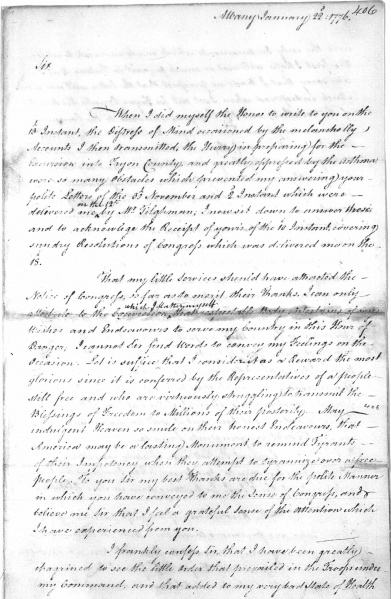 406
Albany January 22d: 1776.
Sir
When I did myself the Honor to write to you on the
13 Instant, the Distress of Mind occasioned by the melancholly
Accounts I then transmitted, the Hurry in preparing for the
Excursion into Tryon County, and greatly oppressed by the Asthma
were so many obstacles which prevented my answering your
polite Letters of the 30 November and 2 Instant which were
on the 12t
delivered me by Mr. Tilghman, I now sit down to answer these
and to acknowlege the Receipt of yours of the 10 Instant, covering
sundry Resolutions of Congress which was delivered me on the
18.
That my little Services should have attracted the
Notice of Congress, so far as to merit their Thanks I can only
which I flatter myself
attribute to the
Wishes and Endeavours to serve my Country in this Hour of
Danger, I cannot Sir find Words to convey my Feelings on the
Occasion. Let it suffice that I consider it as a Reward the most
glorious since it is conferred by the Representatives of a People
still free and who are virtuously struggling to transmit the
Blessings of Freedom to Millions of their posterity. May
indulgent Heaven so smile on their honest Endeavours, that
America may be a lasting Monument to remind Tyrants
of their Impotency when they attempt to tyrannize over a free
People. To you Sir my best Thanks are due for the polite Manner
in which you have conveyed to me the Sense of Congress, and
believe me Sir that I feel a grateful Sense of the attention which
I have experienced from you.
I frankly confess Sir, that I have been greatly
chagrined to see the little order that prevailed in the Troops under
my Command, and that added to my very bad State of Health